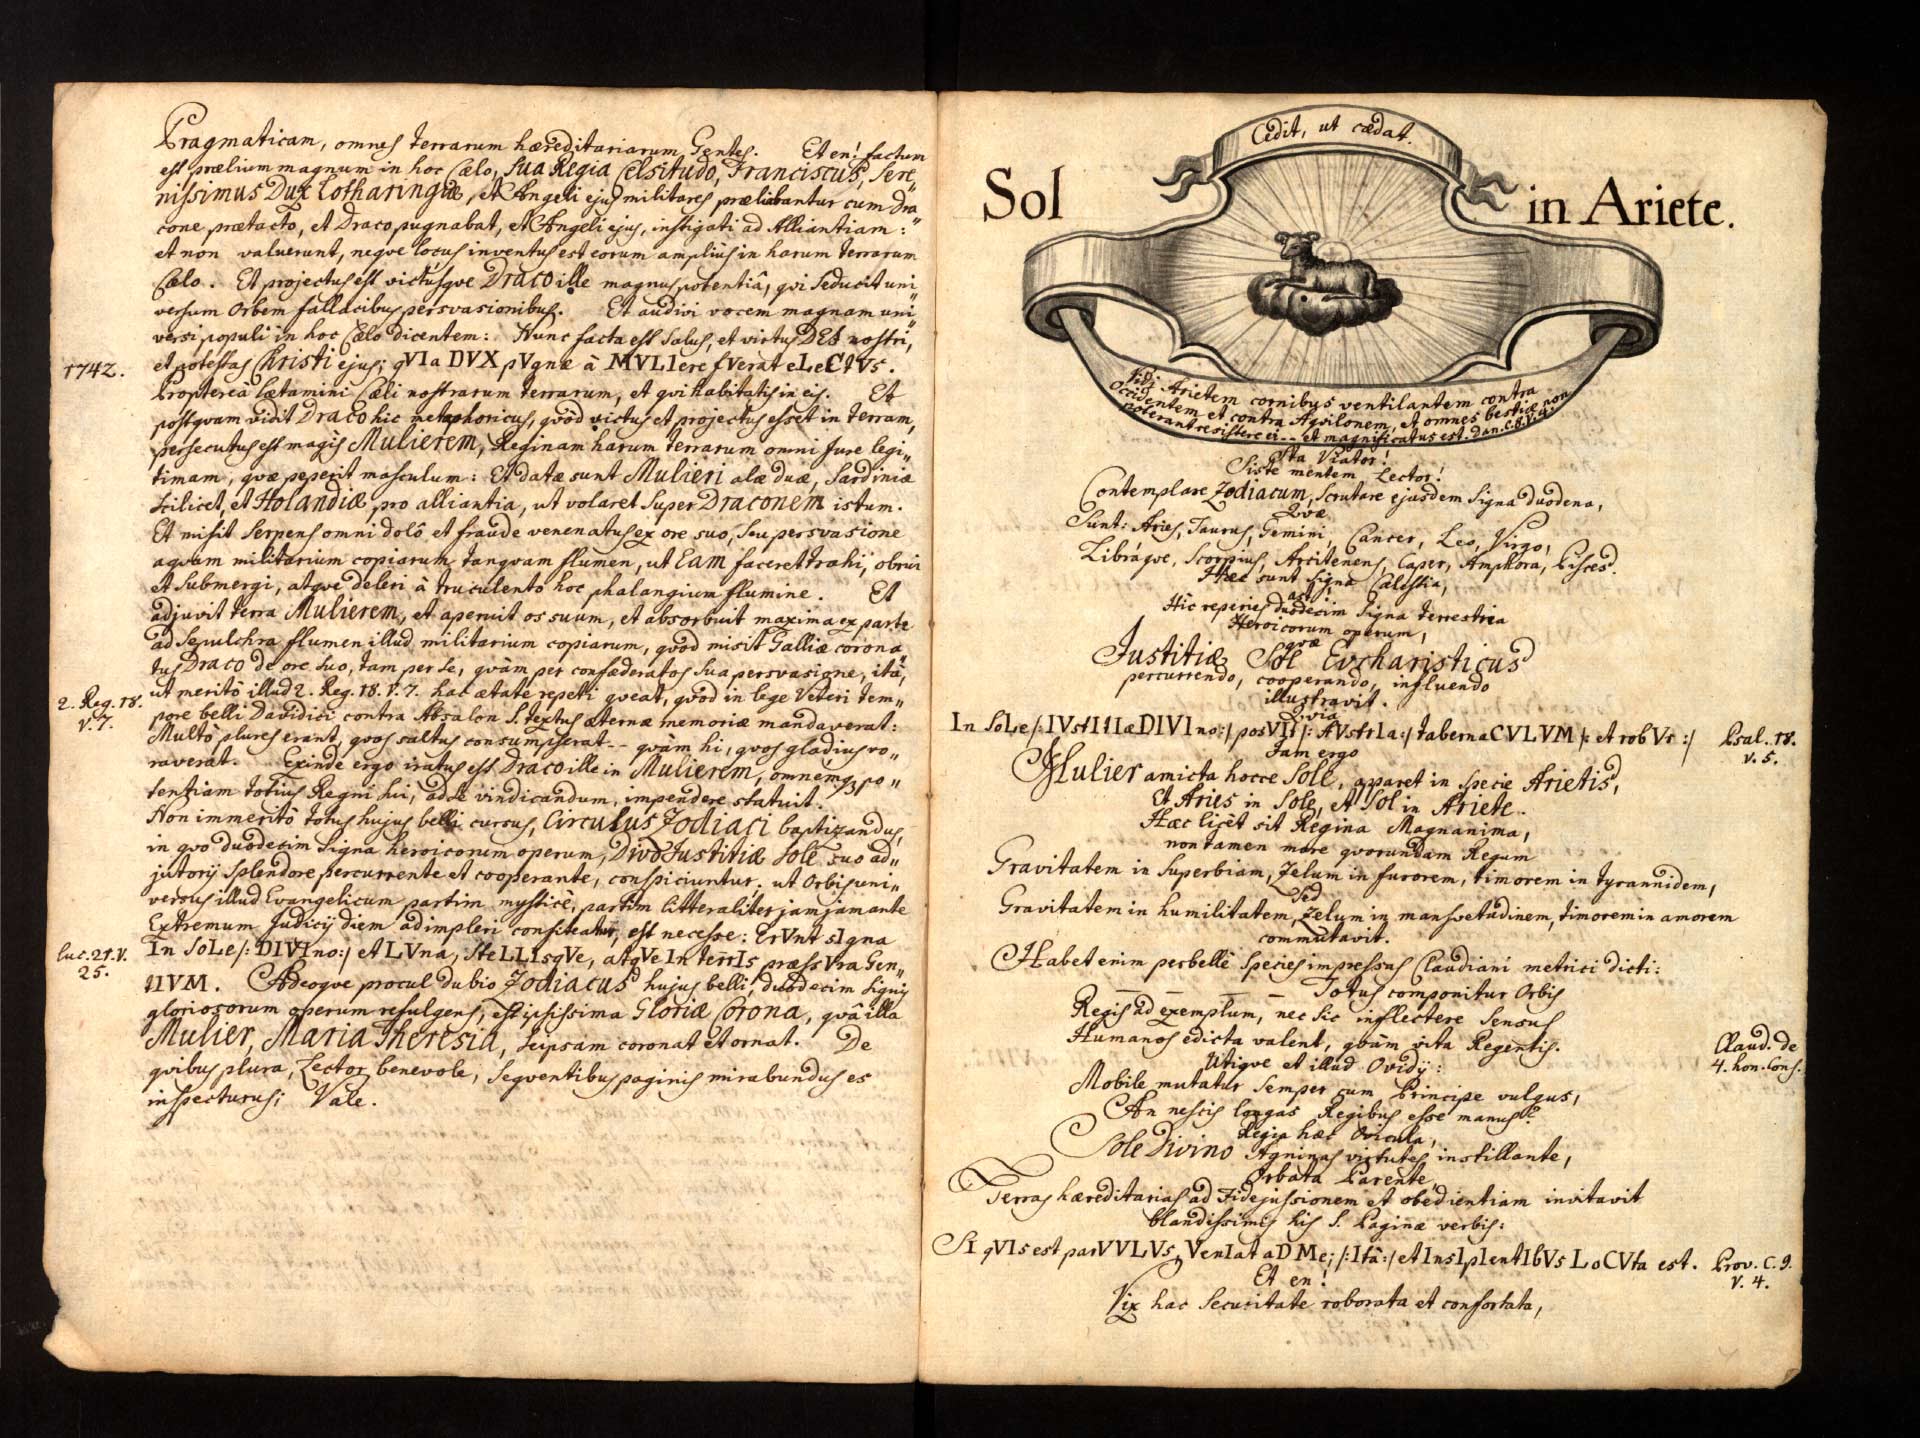 Pragmaticam, omnes terrarum hæreditariarum Gentes. Et en! factum
est prælium magnum in hoc Cælo, Sua Regia Celsitudo, Franciscus, Sere„
nissimus Dux Lotharingiæ, et Angeli ejus militares præliabantur cum Dra„
cone prætacto, et Draco pugnabat, et Angeli ejus, instigati ad Alliantiam:
et non valuerunt, neqve locus inventus est eorum ampliùs in harum terrarum
Cælo. Et projectus est victúsqve Draco ille magnus potentiâ, qvi seducit uni„
versum Orbem fallacibus persvasionibus. Et audivi vocem magnam uni„
versi populi in hoc Cælo dicentem: Nunc facta est salus, et virtus DEI nostri,
1742.
et potestas Christi ejus; qVIa DVX pVgnæ à MVLIere fVerat eLeCtVs.
Proptereà lætamini Cæli nostrarum terrarum, et qvi habitatis in eis. Et
postqvam vidit Draco hic metaphoricus, qvòd victus et projectus esset in terram,
persecutus est magis Mulierem, Reginam harum terrarum omni Jure legi„
timam, qvæ peperit masculum: Et datæ sunt Mulieri alæ duæ, Sardiniæ
scilicet, et Holandiæ pro alliantia, ut volaret super Draconem istum.
Et misit Serpens omni dolô et fraude venenatus ex ore suo, seu persvasione
aqvam militarium copiarum tanqvam flumen, ut Eam faceret trahi, obrui
et submergi, atqve deleri à truculento hoc phalangium flumine. Et
adjuvit terra Mulierem, et aperuit os suum, et absorbuit maxima ex parte
ad Sepulchra flumen illud militarium copiarum, qvod misit Galliæ corona„
tus Draco de ore suo, tam per se, qvàm per confæderatos sua persvasione, ità,
2. Reg. 18.
V. 7.
ut meritò illud 2. Reg. 18. V. 7. hac ætate repeti qveat, qvod in lege Veteri tem„
pore belli Davidici contra Absalon S. textus æternæ memoriæ mandaverat:
Multò plures erant, qvos saltus consumpserat -- qvàm hi, qvos gladius vo„
raverat. Exinde ergo iratus est Draco ille in Mulierem, omnemq; po„
tentiam totius Regni sui, ad se vindicandum, impendere statuit.
Non immeritò totus hujus belli cursus, Circulus Zodiaci baptizandus,
in qvo duodecim signa heroicorum operum, Divô Justitiæ Sole suo ad„
jutorij splendore percurrente et cooperante, conspiciuntur: ut Orbis uni„
versus illud Evangelicum partim mysticè, partim litteraliter jamjam ante
Extremum Judicij diem adimpleri confiteatur, est necesse: ErVnt sIgna
Luc. 21. V.
25.
In SoLe /: DIVIno :/ et LVna, steLLIsqVe, atqVe In terrIs præssVra Gen„
tIVM. Adeoqve procul dubio Zodiacus hujus belli, duodecim signis
gloriosorum operum refulgens, est ipsissima Gloriæ Corona, qvâ illa
Mulier, Maria Theresia, seipsam coronat et ornat. De
qvibus plura, Lector benevole, seqventibus paginis mirabundus es
inspecturus; Vale.
Cedit, ut cædat.
Sol in Ariete.
Vidi Arietem cornibus ventilantem contra
Occidentem, et contra Aqvilonem, et omnes bestiæ non
poterant resistere ei -- et magnificatus est. Dan. C. 8. V. 4.
Sta Viator!
Siste mentem Lector!
Contemplare Zodiacum, scrutare ejusdem Signa duodena,
Qvæ
Sunt: Aries, Taurus, Gemini, Cancer, Leo, Virgo,
Libráqve, Scorpius, Arcitenens, Caper, Amphora, Pisces.
Hæc sunt signa Cælestia,
ast,
Hîc reperies duodecim signa terrestria
Heroicorum operum,
qvæ
Justitiæ Sol Evcharisticus
percurrendo, cooperando, influendo
illustravit.
Qvia
In SoLe /: IVstItIæ DIVIno :/ posVIt /: AVstrIa :/ tabernaCVLVM /: et robVr :/
Psal. 18.
V. 5.
Jam ergo
Mulier amicta hocce Sole, apparet in specie Arietis,
Et Aries in Sole, et Sol in Ariete.
Hæc licèt sit Regina Magnanima,
non tamen more qvorundam Regum
Gravitatem in superbiam, zelum in furorem, timorem in tyrannidem,
Sed
Gravitatem in humilitatem, zelum in mansvetudinem, timorem in amorem
commutavit.
Habet enim perbellè species impressus Claudiani metrici dicti:
— — — — Totus componitur Orbis
Regis ad exemplum, nec sic inflectere sensus
Humanos edicta valent, qvàm vita Regentis.
Claud. de
4. hon. Cons.
Utiqve et illud Ovidij:
Mobile mutatur semper cum Principe vulgus,
An nescis longas Regibus esse manus?
Regia hæc Ovicula,
Sole Divino Agninas virtutes instillante,
Orbata Parente,
Terras hæreditarias ad Fidejussionem et obedientiam invitavit
blandissimis his S. Paginæ verbis:
SI qVIs est parVVLVs, VenIat aD Me; /: Ità :/ et InsIpIentIbVs LoCVta est.
Prov. C. 9.
V. 4.
Et en!
Vix hac securitate roborata et confortata,